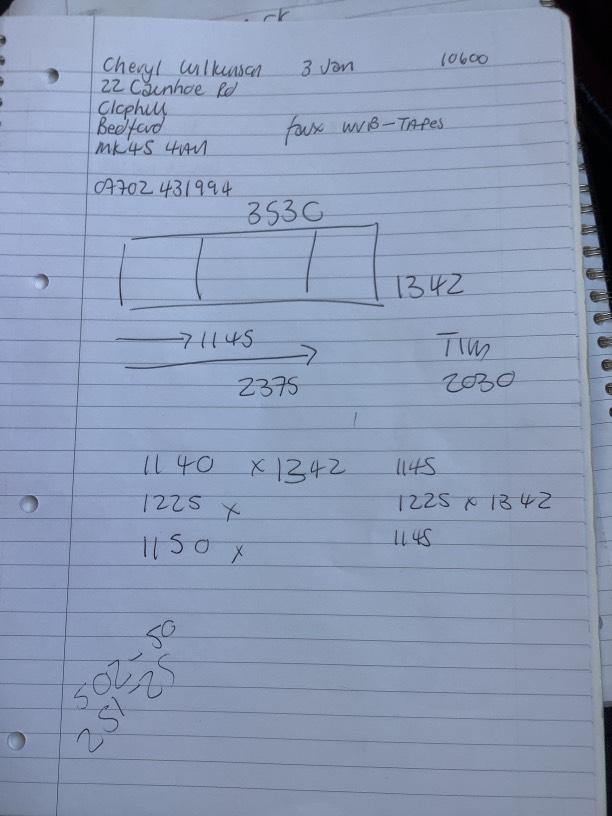 Cheryl Wilkinson 3 Jan 10600
22 Cainhoe Rd
Clophill
Bedford faux WVB-TAPES
MK45 4AM
07702 431994
3530
1342
1145
2375
Tim
2030
1140 x 1342 1145
1225 x 1225 x 1342
1150 x 1145
50
50 2 25
25